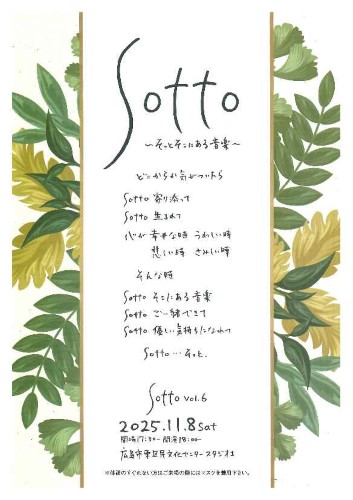 Sotto
～そっとそこにある音楽～
どこからか気がついたら
Sotto 寄り添って
Sotto 生まれて
心が 幸せな時 うれしい時
悲しい時 さみしい時
そんな時
Sotto そこにある音楽
Sotto ご一緒できて
Sotto 優しい気持ちになれて
Sotto…そっと。
Sotto vol.6
2025.11.8 sat
開場17:30－開演18:00－
広島市東区民文化センタースタジオ2
※体調のすぐれない方はご来場の際にはマスクを着用下さい。